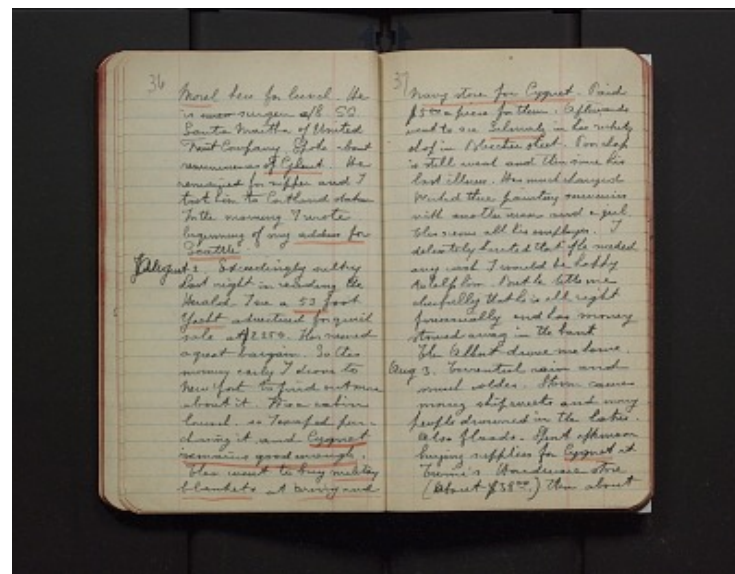 36
Morel here for lunch. He
is now surgeon a/B SS
Santa Martha of United
Fruit Company. Spoke about
reminiscences of Cygnet. He
remained for supper and I
took him to Cortland station
In the morning I wrote
beginning of my address for
Seattle.
August 2. Exceedingly sultry
Last night in reading the
Herald, I see a 53 foot
Yacht advertised for quick
sale at $2350. Has seemed
a great bargain. So this
morning early I drove to
New York to find out more
about it. Was a cabin
launch. so I
it and Cygnet
remains good enough.
Then went to buy military
blankets at Army and
37
Navy store for Cygnet. Paid
$5.00 a piece for them. Afterwards
went to see in his
in Bleecker street. Poor chap
is still weak and thin since his
last illness. Has much changed
Worked there painting souvenirs
with another man and a girl.
This seems all his employees. I
delicately hinted that if he needed
any cash I would be happy
to help him. But he tells me
cheerfully that he is all right
financially and has money
stowed away in the bank
Then Albert drove me home
Aug 3. Torrential rain and
much colder. Storm causes
many shipwrecks and many
people drowned in the lakes.
Also floods. Spent afternoon
buying supplies for Cygnet at
Hardware store
(About $38.00.) Then about